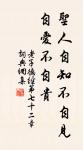 聖人自知不自見
自愛不自貴
老子德經第七十二章
詞典網集